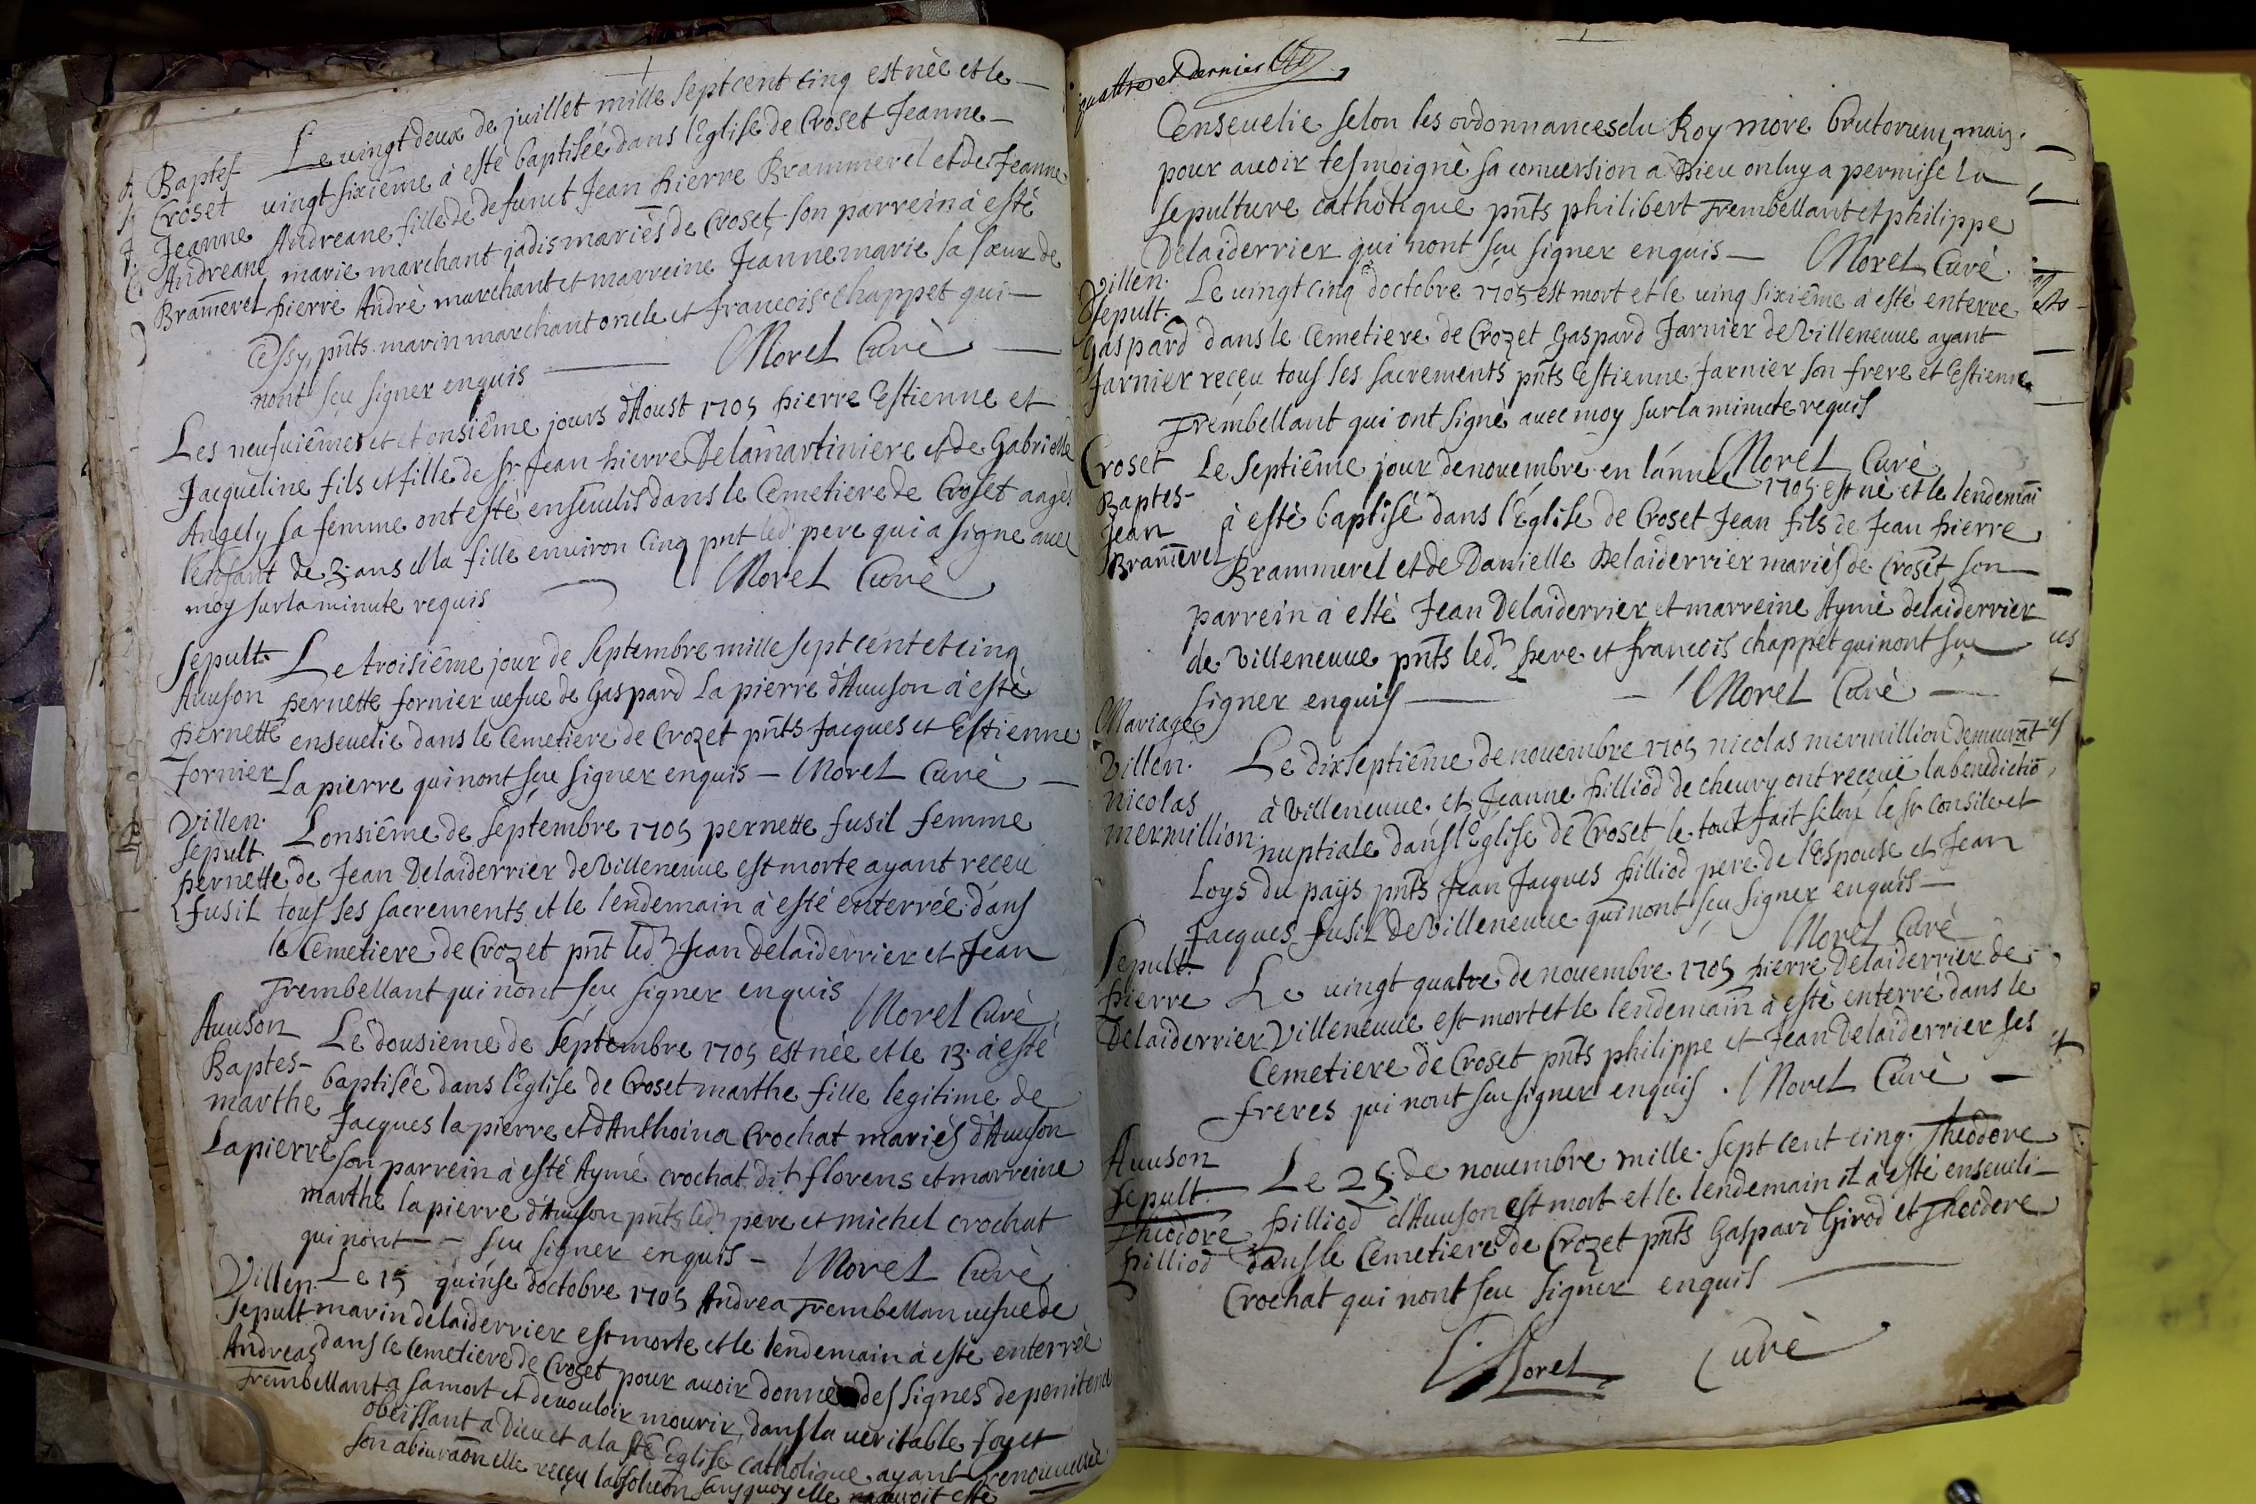 Baptes.
Croset
Jeanne
Andreane
Bramerel
Le vingt deux de juillet mille sept cent cinq est née et le
vingt sixiême à esté baptisée dans l'Eglise de Croset Jeanne
Andreane fille de defunct Jean Pierre Brammerel et de Jeanne
marie marchant jadis mariés de Croset, son parrein à esté
Pierre Andrè marchant et marreine Jeanne marie sa sœur de
Cessy, pnts marin marchant oncle et francois chappet qui
nont sçu signer enquis Morel Curè
Les neufuiêmes et et onsiême jours d'Aoust 1705 Pierre Estienne et
Jacqueline fils et fille de sr Jean Pierre Delamartiniere et de Gabrielle
Angely sa femme ont esté enseuelis dans le Cemetiere de Croset aagès
l'enfant de 3 ans et la fille environ Cinq pnt led. pere qui a signe auec
moy sur la minute requis Morel Curè
Sepult.
Auuson
Pernette
fornier
Le troisiême jour de Septembre mille sept cent et cinq
Pernette fornier uefue de Gaspard Lapierre d'Auuson à esté
enseuelie dans le Cemetiere de Crozet pnts Jacques et Estienne
La pierre qui nont sçu signer enquis Morel Curè
Villen.
Sepult.
Pernette
fusil
Lonsiême de Septembre 1705 pernette fusil femme
de Jean Delaiderrier de Villeneuue est morte ayant reçeu
tous ses sacrements et le lendemain à esté enterrée dans
le Cemetiere de Crozet pnt led. Jean Delaiderrier et Jean
Trembellant qui nont sçu signer enquis Morel Curè
Auuson
Baptes
marthe
Lapierre
Le dousieme de Septembre 1705 est née et le 13. à esté
baptisée dans l'Eglise de Croset marthe fille legitime de
Jacques lapierre et d'Anthoina Crochat mariés d'Auuson
son parrein à esté Aymé crochat dit florens et marreine
marthe lapierre d'Auuson pnts led. pere et michel crochat
qui nont sçu signer enquis Morel Curè
Villen.
Sepult
Andrea
Trembellant
Le 15 quinse doctobre 1705 Andrea Trembellan uefue de
marin delaiderrier est morte et le lendemain à esté enterrée
dans le Cemetiere de Crozet pour auoir donnè des signes de penitence
a sa mort et de vouloir mourir dans la veritable foy et
obeissant a Dieu et a la ste Eglise catholique ayant renouuellée
son abiuraõn elle reçeu labsoluõn sans quoy elle nauroit esté
quattre et dernier
Enseuelie selon les ordonnances du Roy more brutorum, mais
pour auoir tesmoigné sa conuersion a Dieu on luy a permise la
sepulture catholique pnts philibert Trembellant et philippe
Delaiderrier qui nont sçu signer enquis Morel Curè
Villen.
Sepult.
Gaspard
Jarnier
Le vingt cinq doctobre 1705 est mort et le uing sixiême à esté enterre
dans le Cemetiere de Crozet Gaspard Jarnier de Villeneuue ayant
receu tous ses sacrements pnts Estienne Jarnier son frere et Estienne
Trembellant qui ont signè auec moy sur la minute requis
Morel Curè
Croset
Baptes
Jean
Bramerel
Le Septiême jour de nouembre en lánneé 1705 est né et le lendemai
à esté baptisé dans l'Eglise de Croset Jean fils de Jean Pierre
Brammerel et de Danielle Delaiderrier mariés de Croset, son
parrein à esté Jean Delaiderrier et marreine Aymè delaiderrier
de Villeneuue pnts led. Pere et francois chappet qui nont sçu
signer enquis Morel Curè
Mariage
Villen.
nicolas
mermillion
Le dixseptiême de nouembre 1705 nicolas mermillion demeurãt
à Villeneuue et Jeanne Pilliod de cheury ont reçeuë la benedictiõ
nuptiale dans l'Eglise de Croset le tout fait selon le st Consile et
Loys du païs pnts Jean Jacques Pilliod pere de l'espouse et Jean
Jacques fusil de Villeneuue qui nont sçu signer enquis
Morel Curè
Sepult.
Pierre
Delaiderrier
Le vingt quatre de nouembre 1705 Pierre Delaiderrier de
Villeneuue est mort et le lendemain à esté enterré dans le
Cemetiere de Croset pnts philippe et Jean Delaiderrier ses
freres qui nont sçu signer enquis. Morel Curè
Auuson
Sepult.
Theodore
Pilliod
Le 25. de nouembre mille sept cent cinq. Theodore
Pilliod d'Auuson est mort et le lendemain il à esté enseueli
dans le Cemetiere de Crozet pnts Gaspard Girod et Theodore
Crochat qui nont sçu signer enquis
Morel Curè